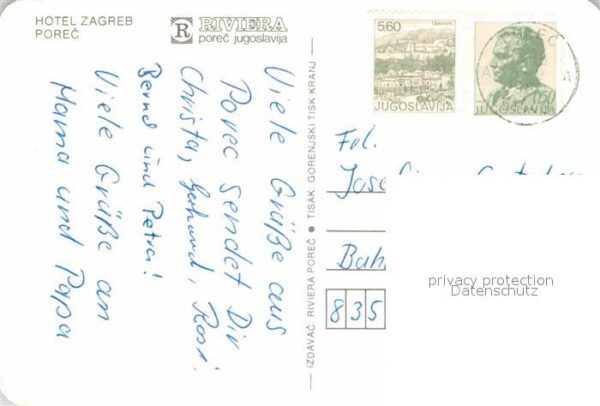 HOTEL ZAGREB
POREČ
R RIVIERA
poreč jugoslavija
Viele Grüße aus
Porec sendet Dir
Christa, Gerhard, Rosi
Bernd und Petra!
Viele Grüße an
Mama und Papa
IZDAVAČ: RIVIERA POREČ ● TISAK: GORENJSKI TISK KRANJ
5.60
JUGOSLAVIJA
JUGOSLAVIJA
Frl.
835
privacy protection
Datenschutz